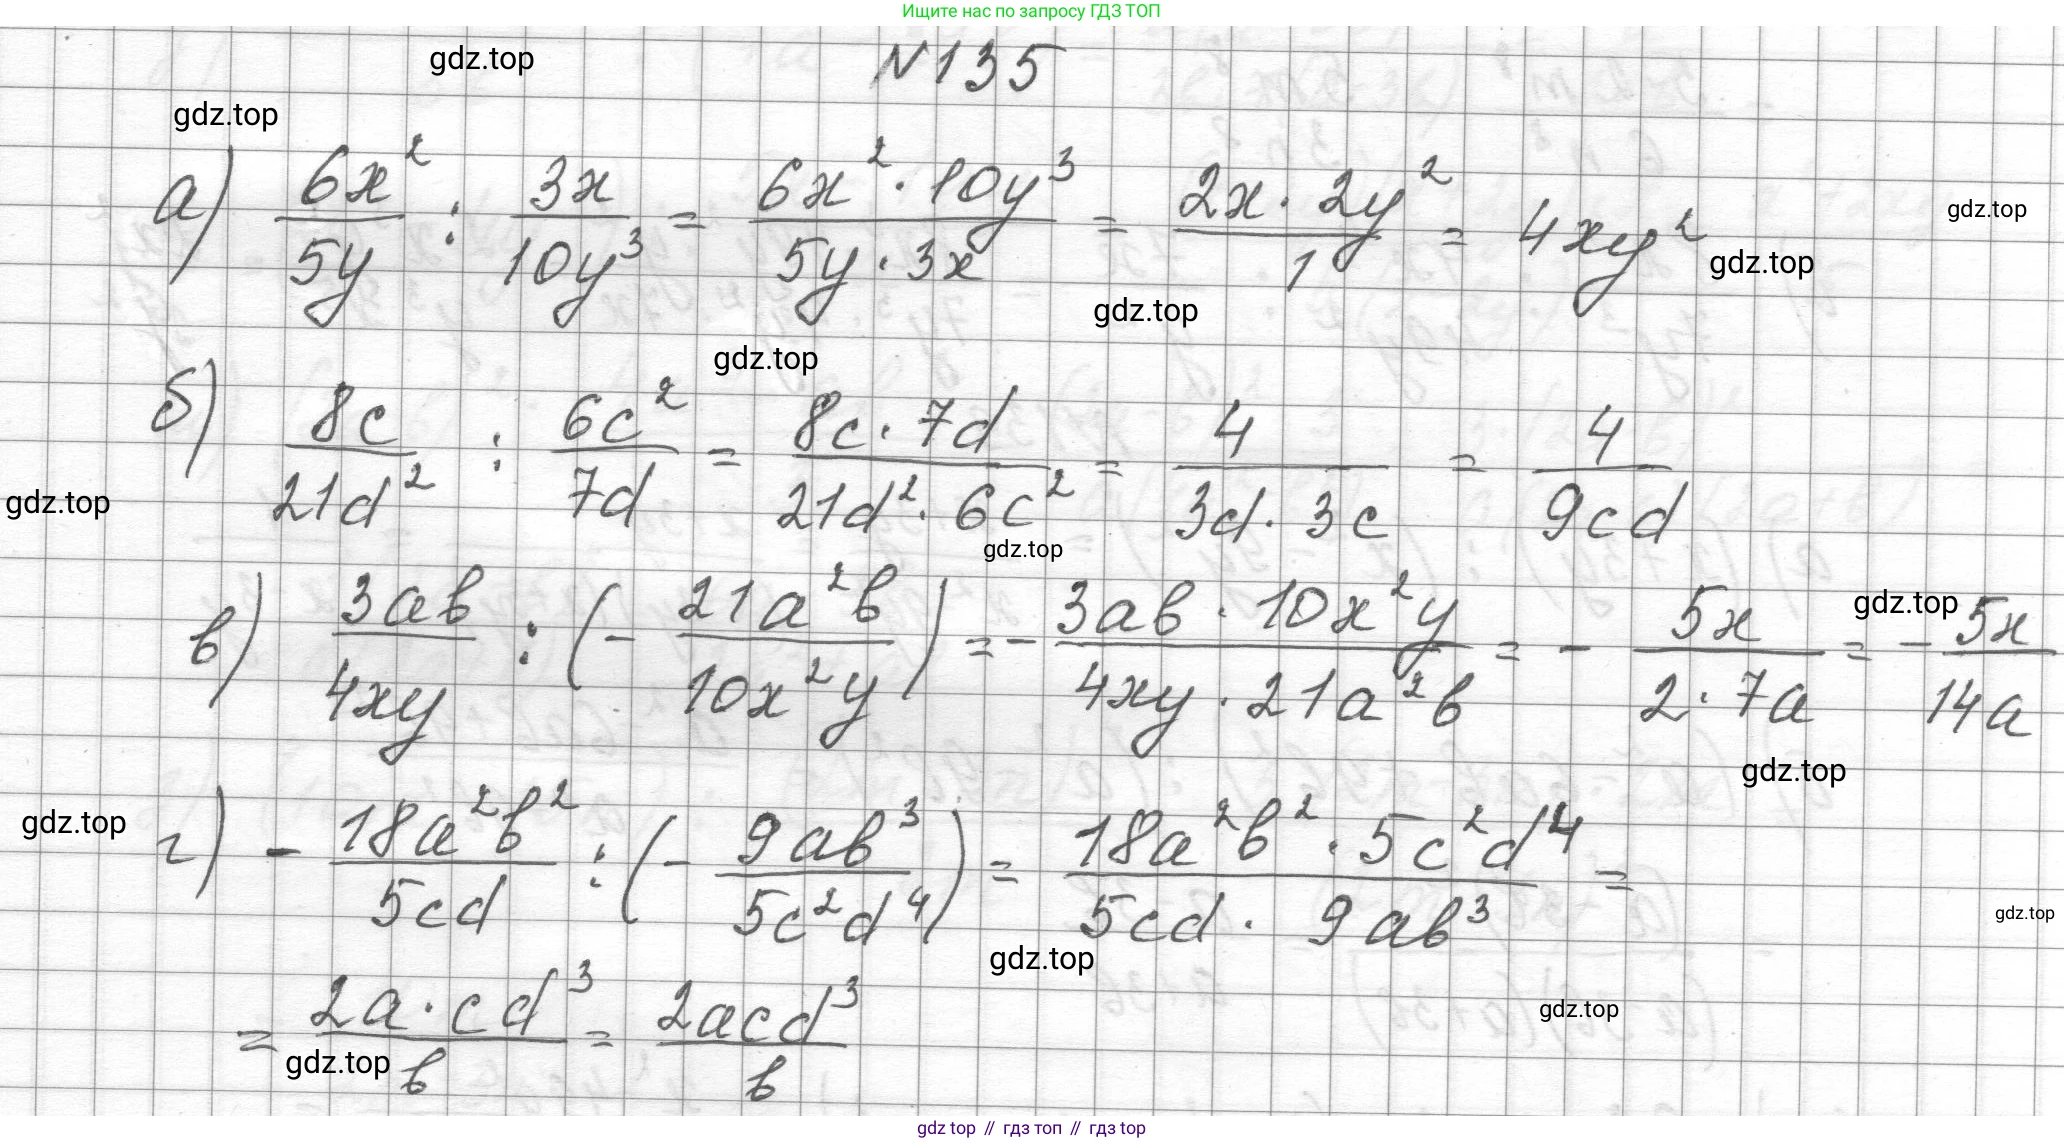 Ищите нас по запросу ГДЗ ТОП
gdz.top
№135
gdz.top
а) 6x²/5y : 3x/10y³ = 6x² · 10y³/5y · 3x = 2x · 2y²/1 = 4xy²
gdz.top
gdz.top
gdz.top
gdz.top
б) 8c/21d² : 6c²/7d = 8c · 7d/21d² · 6c² = 4/3d · 3c = 4/9cd
gdz.top
gdz.top
gdz.top
в) 3ab/4xy : (- 21a²b/10x²y) = - 3ab · 10x²y/4xy · 21a²b = - 5x/2 · 7a = - 5x/14a
gdz.top
gdz.top
г) - 18a²b²/5cd : (- 9ab³/5c²d⁴) = 18a²b² · 5c²d⁴/5cd · 9ab³ =
gdz.top
gdz.top
gdz.top
= 2a · cd³/b = 2acd³/b
gdz.top
gdz top // гдз топ // гдз top